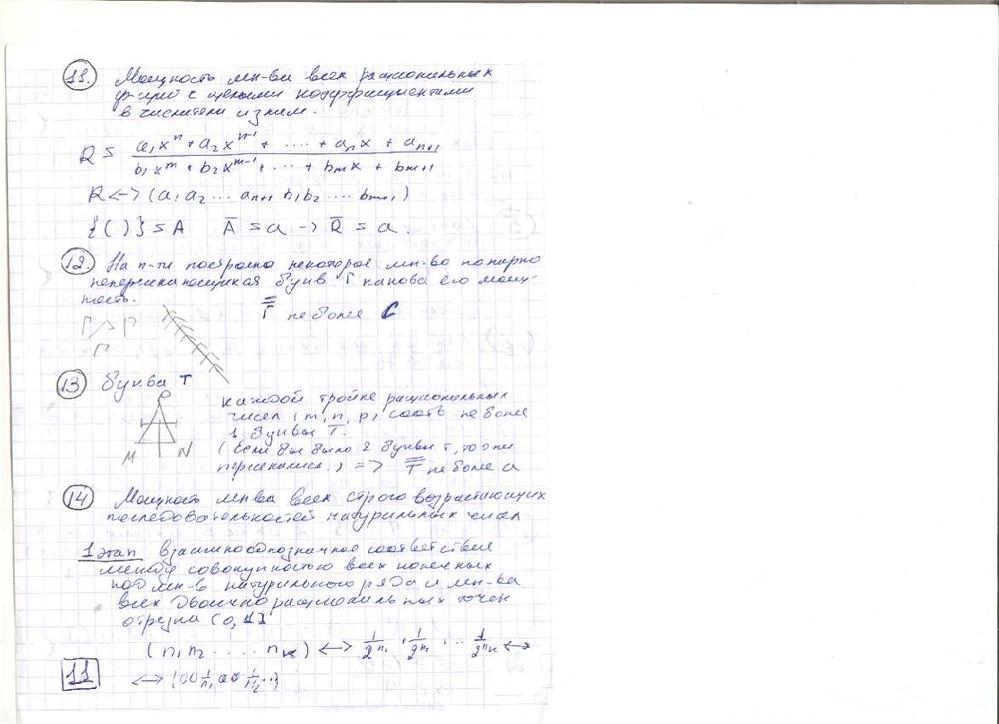 11. Мощность мн-ва всех рациональных
ф-ций с целыми коэффициентами
в числители и знам.
R = (a₁xⁿ + a₂xⁿ⁻¹ + .... + aₙx + aₙ₊₁) / (b₁xᵐ + b₂xᵐ⁻¹ + ... + bₘx + bₘ₊₁)
R <-> (a₁ a₂ ... aₙ₊₁ b₁ b₂ .... bₘ₊₁)
{( )} = A   Ā = a -> R̄ = a.
12. На п-ти построено некоторое мн-во попарно
непересекающихся букв Г какова его мощ-
ность.
Г̿ не более C
Г Г
Г
13 Буква Т
P
каждой тройке рациональных
чисел (m, n, p) соотв не более
1 буквы Т.
M N
(Если бы было 2 буквы т, то они
пересекались.) => Т̿ не более a
14 Мощность мн-ва всех строго возрастающих
последовательностей натуральных чисел
1 этап Взаимнооднозначное соответствие
между совокупностью всех конечных
подмн-в натурального ряда и мн-ва
всех двоично рациональных точек
отрезка (0, 1]
(n₁ n₂ ..... nₖ) <-> 1/2ⁿ¹ + 1/2ⁿ² ... 1/2ⁿᵏ <->
11